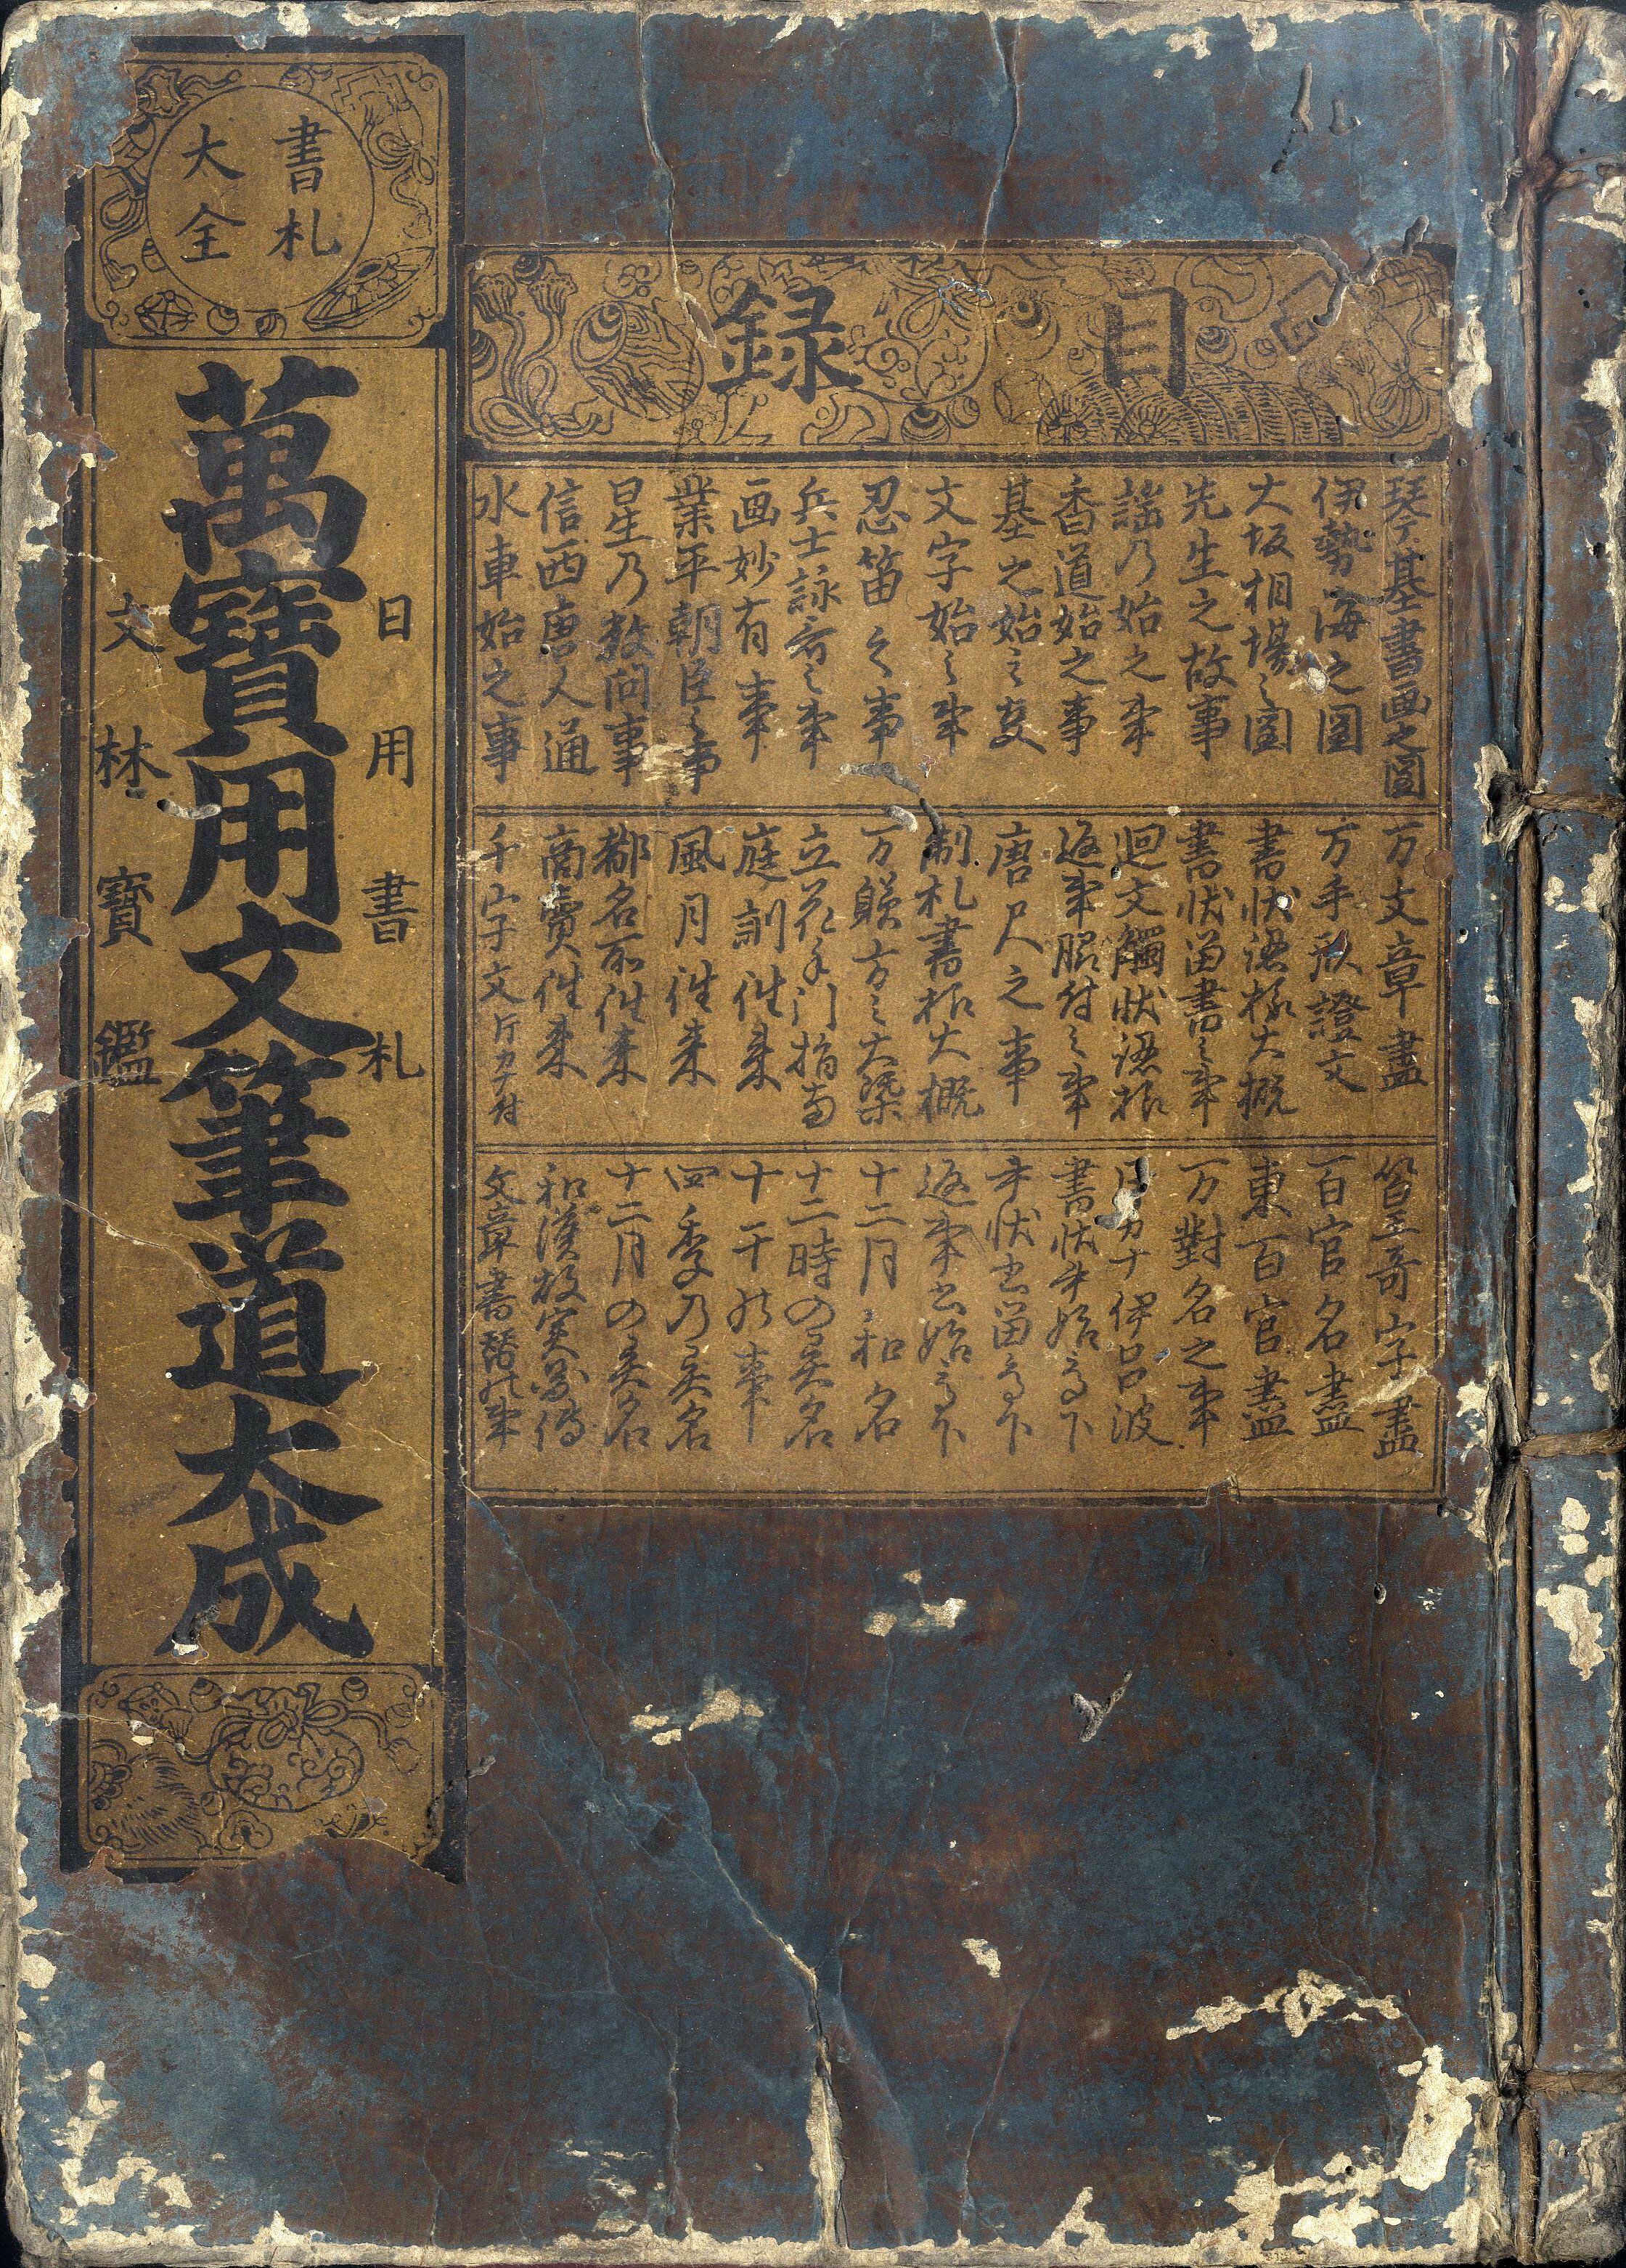 書札
大全
日用書札
萬寶用文筆道大成
文林寳鑑
目録
琴棊書画之圖
伊勢海之圖
大坂相場之圖
先生之故事
謡乃始之事
香道始之事
基之始之支
文字始之事
忍笛之事
兵士詠哥之事
画妙有事
業平朝臣之事
星乃数問事
信西唐人通
水車始之事
万文章盡
万手形證文
書状認様大概
書状留書之事
迴文觸状認様
返事昭付之事
唐尺之事
制札書様大概
万躾方之大㮣
立花手引指南
庭訓徃来
風月徃来
都名所徃来
商賣徃来
千字文片カナ付
篆字盡
百官名盡
東百官盡
万對名之事
片カナ伊呂波
書状書始高下
書状書留高下
返事書始高下
十二月和名
十二時の異名
十干所事
四季乃異名
十二月の異名
和漢故実
文章書